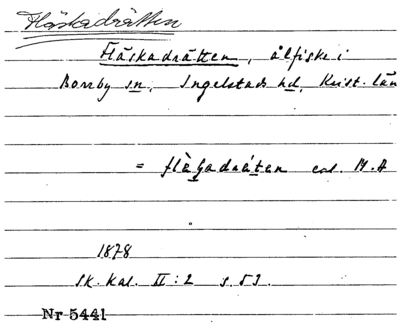 Fläskadrätten
Fläskadrätten, ålfiske i
Borrby sn, Ingelstads hd, Krist. län
= flàgadrátan enl. M.A
1878
Sk. Kal. II:2 s. 53.
Nr 5441